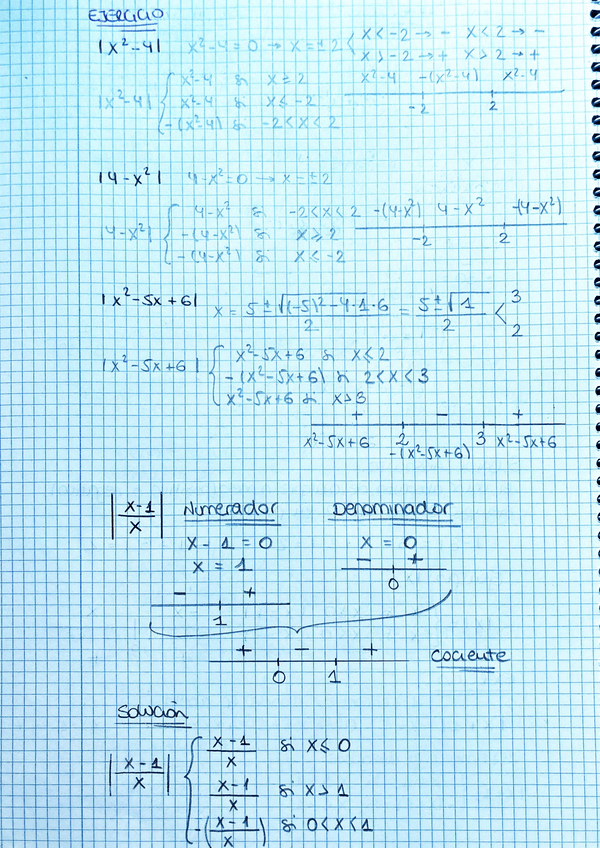 EJERCICIO
|x²-4| x²-4=0 → x=±2 < x<-2 → - x<2 → -
x>-2 → + x>2 → +
|x²-4| { x²-4 si x≥2
x²-4 si x≤-2
-(x²-4) si -2<x<2
x²-4 -(x²-4) x²-4
-2 2
|4-x²| 4-x²=0 → x=±2
|4-x²| { 4-x² si -2<x<2
-(4-x²) si x≥2
-(4-x²) si x≤-2
-(4-x²) 4-x² -(4-x²)
-2 2
|x²-5x+6| x = 5±√(-5)²-4·1·6 / 2 = 5±√1 / 2 < 3
2
|x²-5x+6| { x²-5x+6 si x≤2
-(x²-5x+6) si 2<x<3
x²-5x+6 si x≥3
+ - +
x²-5x+6 2 -(x²-5x+6) 3 x²-5x+6
|x-1 / x| Numerador Denominador
x-1=0 x=0
x=1 - +
- + 0
1
+ - + cociente
0 1
Solución
|x-1 / x| { x-1 / x si x≤0
x-1 / x si x≥1
-(x-1 / x) si 0<x<1